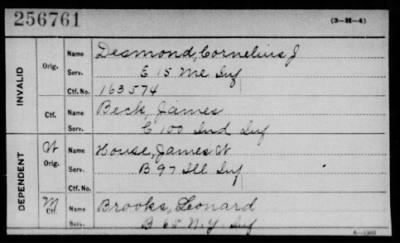 256761
(3-M-4)
INVALID
Orig.
Name Desmond, Cornelius J
Serv. E 15 Me Inf
Ctf. No. 163574
Ctf.
Name Beck, James
Serv. C 100 Ind Inf
DEPENDENT
W
Orig.
Name House, James W
Serv. B 97 Ill Inf
Ctf. No.
M
Ctf.
Name Brooks, Leonard
Serv. B 65 N.Y Inf